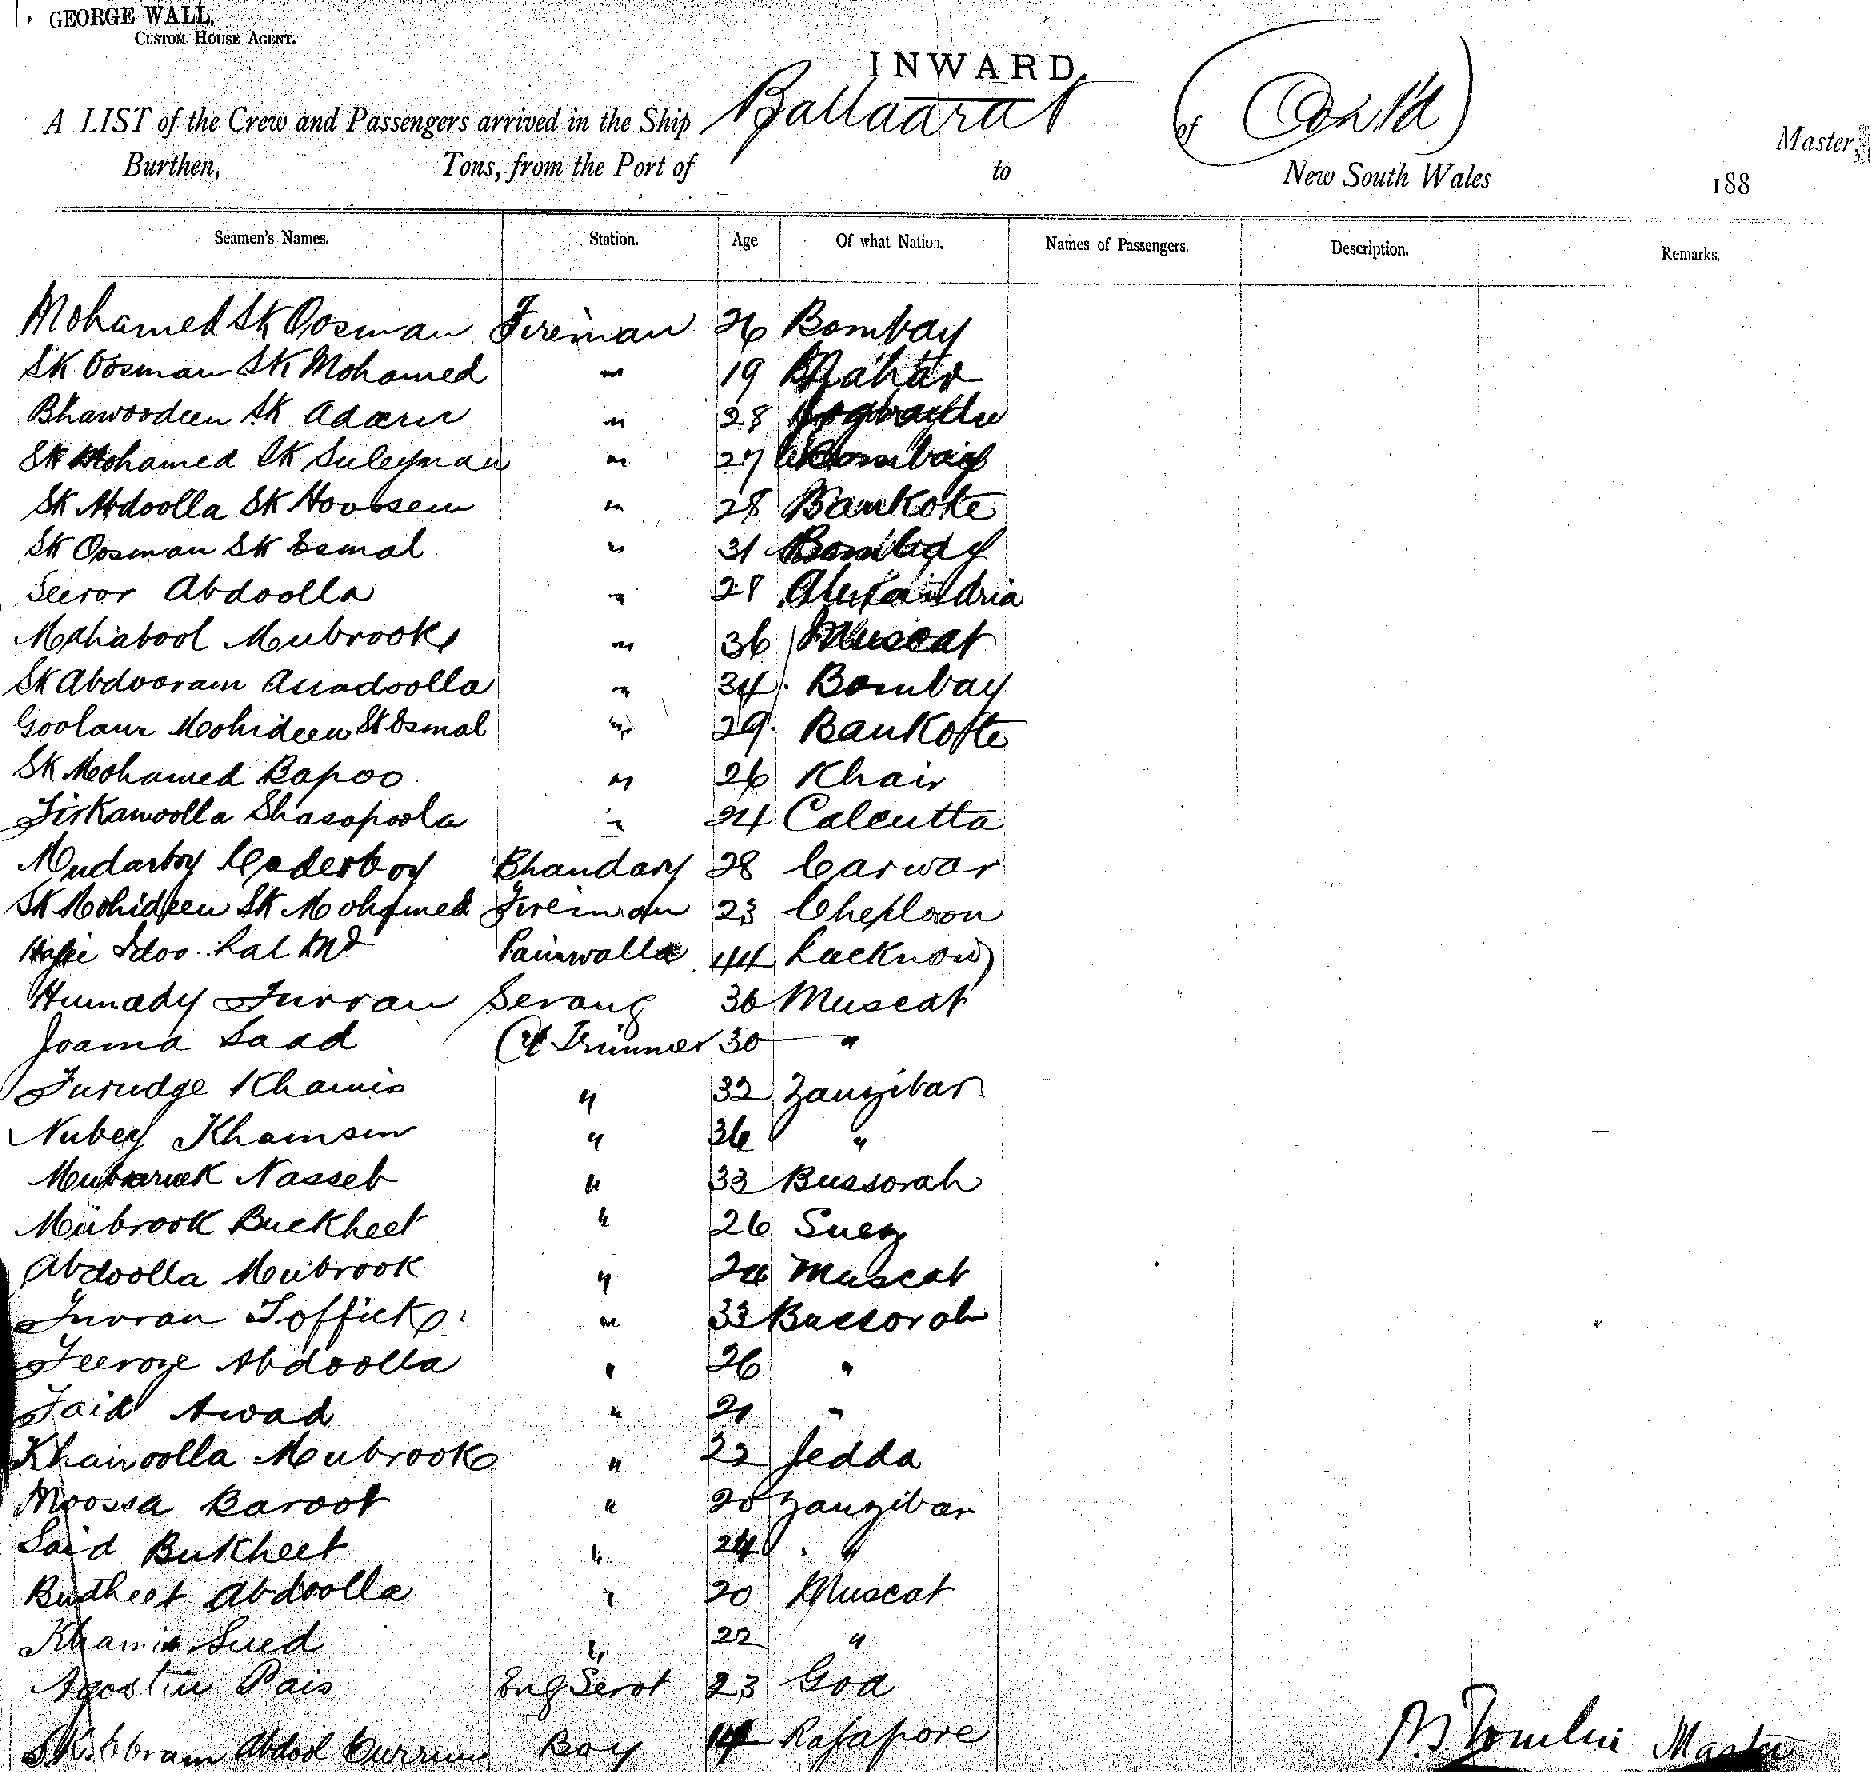 GEORGE WALL,
CUSTOM HOUSE AGENT.
INWARD.
A LIST of the Crew and Passengers arrived in the Ship Ballaarat (of Contd) Master,
Burthen, Tons, from the Port of to New South Wales 188
Seamen's Names. Station. Age Of what Nation. Names of Passengers. Description. Remarks.
Mohamed Sk Oosman Fireman 26 Bombay
Sk Oosman Sk Mohamed " 19
Bhawoodeen Sk Adam " 28
Sk Mohamed Sk Suleyman " 27 Bombay
Sk Abdoolla Sk Hoosein " 28 Bankote
Sk Oosman Sk Esmal " 31 Bombay
Seeror Abdoolla " 28 Alexandria
Mahabool Mubrook " 36 Muscat
Sk Abdooram Amadoolla " 34 Bombay
Goolam Mohideen Sk Esmal " 29 Bankote
Sk Mohamed Bapoo " 26 Khair
Shasapoola " 24 Calcutta
Mudarboy Caderboy Bhandary 28 Carwar
Sk Mohideen Sk Mohamed Fireman 23 Cheploon
Idoo Lal Md 44 Lucknow
Humady Furran Serang 36 Muscat
Joama Saad Cl Trimmer 30 "
Furudge Khamis " 32 Zanzibar
Nubey Khamsin " 36 "
Mubaruck Nasseb " 33 Bussorah
Mubrook Buckheet " 26 Suez
Abdoolla Mubrook " Muscat
Furran Toffick " 33 Bussorah
Feeroze Abdoolla " 26 "
Faid Awad " 21 "
Khairoolla Mubrook " 22 Jedda
Moossa Baroot " 20 Zanzibar
Said Bukheet " 24 "
Budheet Abdoolla " 20 Muscat
Khamis Sued " 22 "
Agostin Pais Eng Servt 23 Goa
Sk Ebram Abdod Curreem Boy 14 Rajapore
Tomlin Master